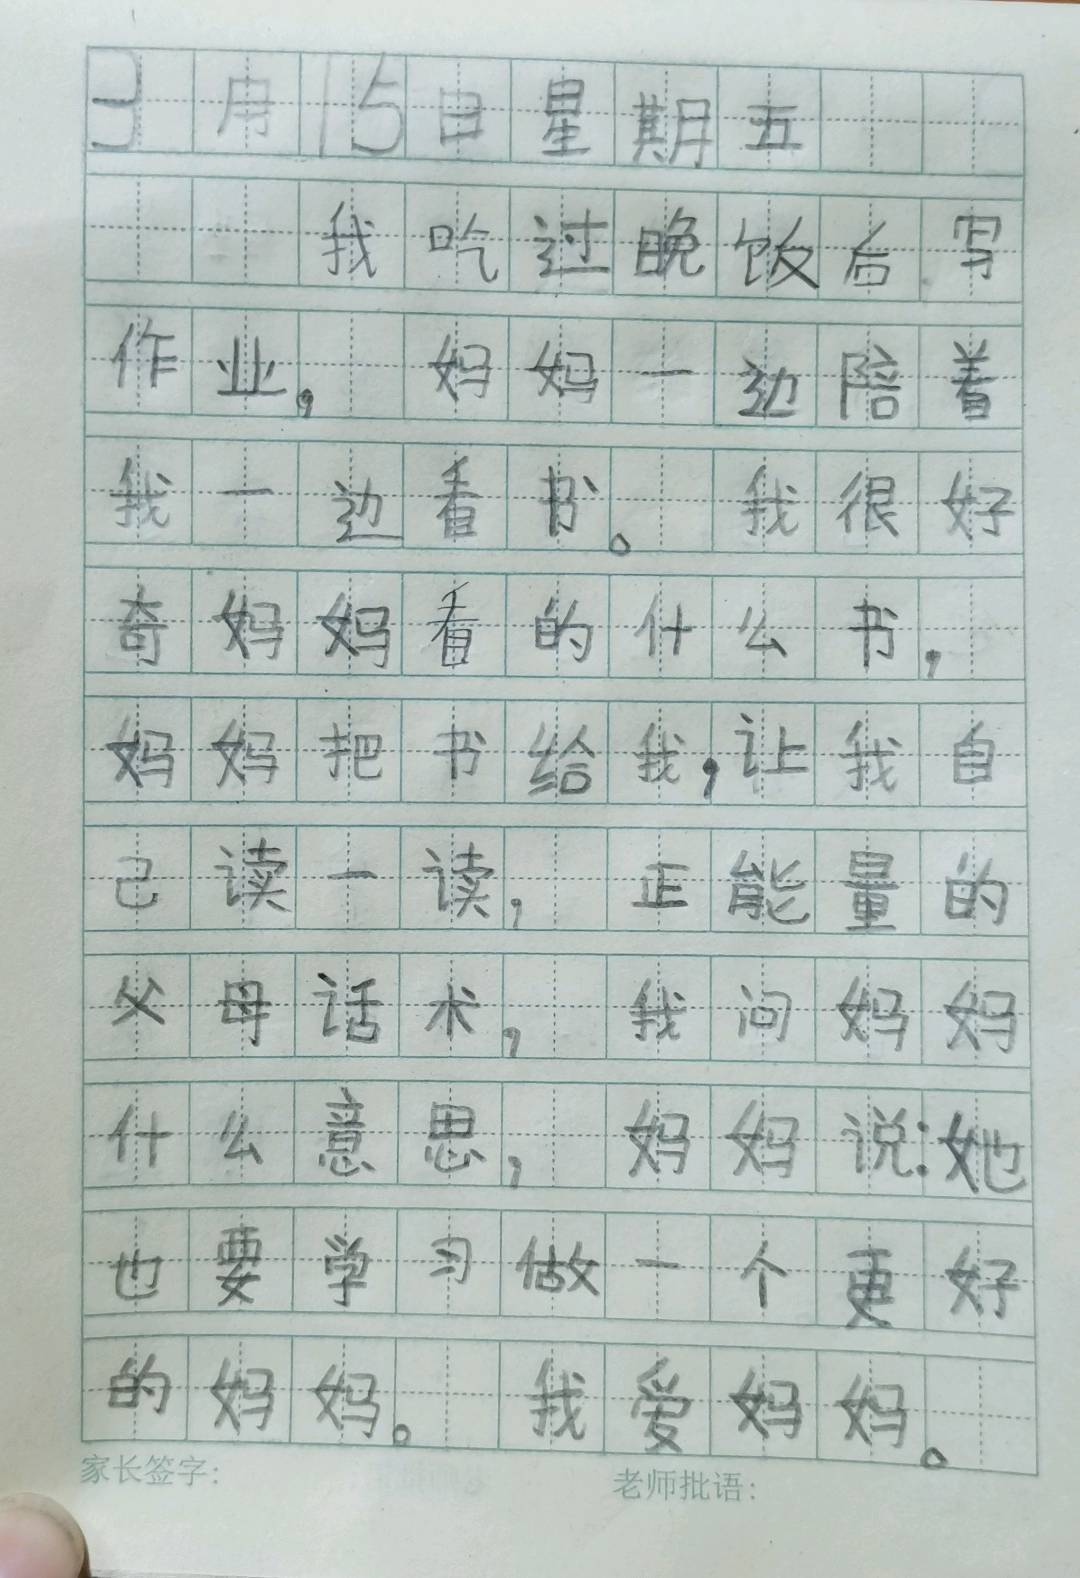 3月15日星期五
我吃过晚饭后写
作业，妈妈一边陪着
我一边看书。我很好
奇妈妈看的什么书，
妈妈把书给我，让我自
己读一读，正能量的
父母话术，我问妈妈
什么意思，妈妈说：她
也要学习做一个更好
的妈妈。我爱妈妈。
家长签字： 老师批语：